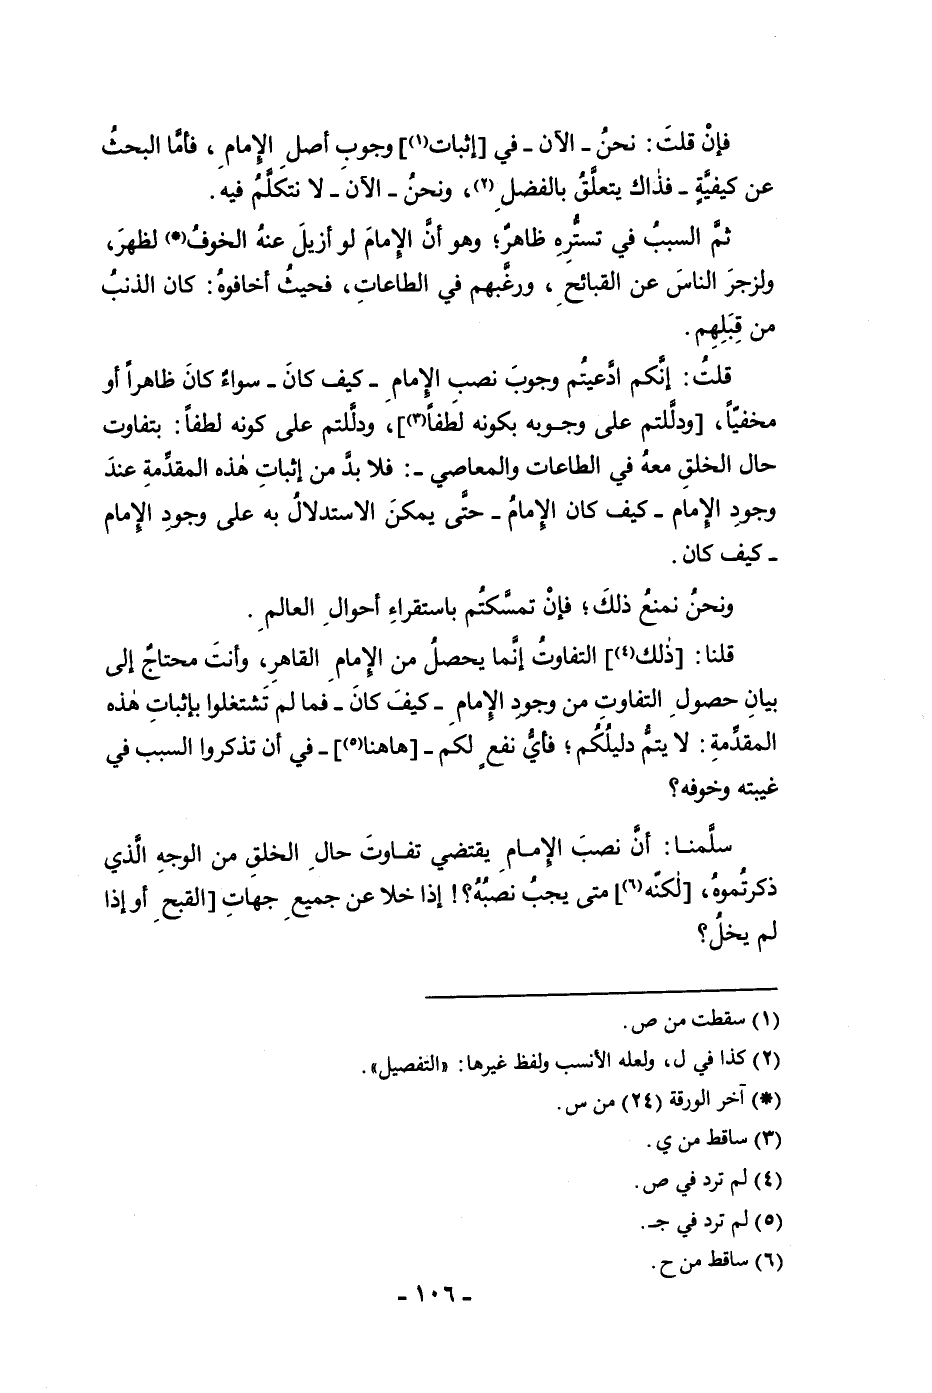 فإنْ قلتَ: نحنُ ـ الآن ـ في [إثبات(١)] وجوبِ أصلِ الإمامِ، فأمَّا البحثُ
عن كيفيَّةٍ ـ فذٰاك يتعلَّقُ بالفضلِ(٢)، ونحنُ ـ الآن ـ لا نتكلَّمُ فيه.
ثمَّ السببُ في تستُّرِهِ ظاهرٌ؛ وهو أنَّ الإمامَ لو أزيلَ عنهُ الخوفُ(*) لظهرَ،
ولزجرَ الناسَ عن القبائحِ، ورغَّبهم في الطاعاتِ، فحيثُ أخافوهُ: كان الذنبُ
من قِبَلِهِم.
قلتُ: إنَّكم ادَّعيتُم وجوبَ نصبِ الإمامِ ـ كيف كانَ ـ سواءٌ كانَ ظاهراً أو
مخفيّاً، [ودلَّلتم على وجـوبه بكونه لطفاً(٣)]، ودلَّلتم على كونه لطفاً: بتفاوت
حال الخلقِ معهُ في الطاعات والمعاصي ـ: فلا بدَّ من إثباتِ هٰذه المقدِّمةِ عندَ
وجودِ الإمام ـ كيف كان الإمامُ ـ حتَّى يمكنَ الاستدلالُ به على وجودِ الإمام
ـ كيف كان.
ونحنُ نمنعُ ذلكَ؛ فإنْ تمسَّكتُم باستقراءِ أحوالِ العالمِ.
قلنا: [ذٰلك(٤)] التفاوتُ إنَّما يحصلُ من الإمامِ القاهرِ، وأنتَ محتاجٌ إلى
بيانِ حصولِ التفاوتِ من وجودِ الإمامِ ـ كيفَ كانَ ـ فما لم تَشتغلوا بإثباتِ هٰذه
المقدِّمةِ: لا يتمُّ دليلُكُم؛ فأيُّ نفعٍ لكم ـ [هاهنا(٥)] ـ في أن تذكروا السبب في
غيبته وخوفه؟
سلَّمنـا: أنَّ نصبَ الإمـامِ يقتضي تفـاوتَ حالِ الخلقِ من الوجهِ الَّذي
ذكرتُموهُ، [لٰكنّه(٦)] متى يجبُ نصبُهُ؟! إذا خلا عن جميعِ جهاتِ [القبحِ أو إذا
لم يخلُ؟
(١) سقطت من ص.
(٢) كذا في ل، ولعله الأنسب ولفظ غيرها: «التفصيل».
(*) آخر الورقة (٢٤) من س.
(٣) ساقط من ي.
(٤) لم ترد في ص.
(٥) لم ترد في جـ.
(٦) ساقط من ح.
ـ ١٠٦ ـ